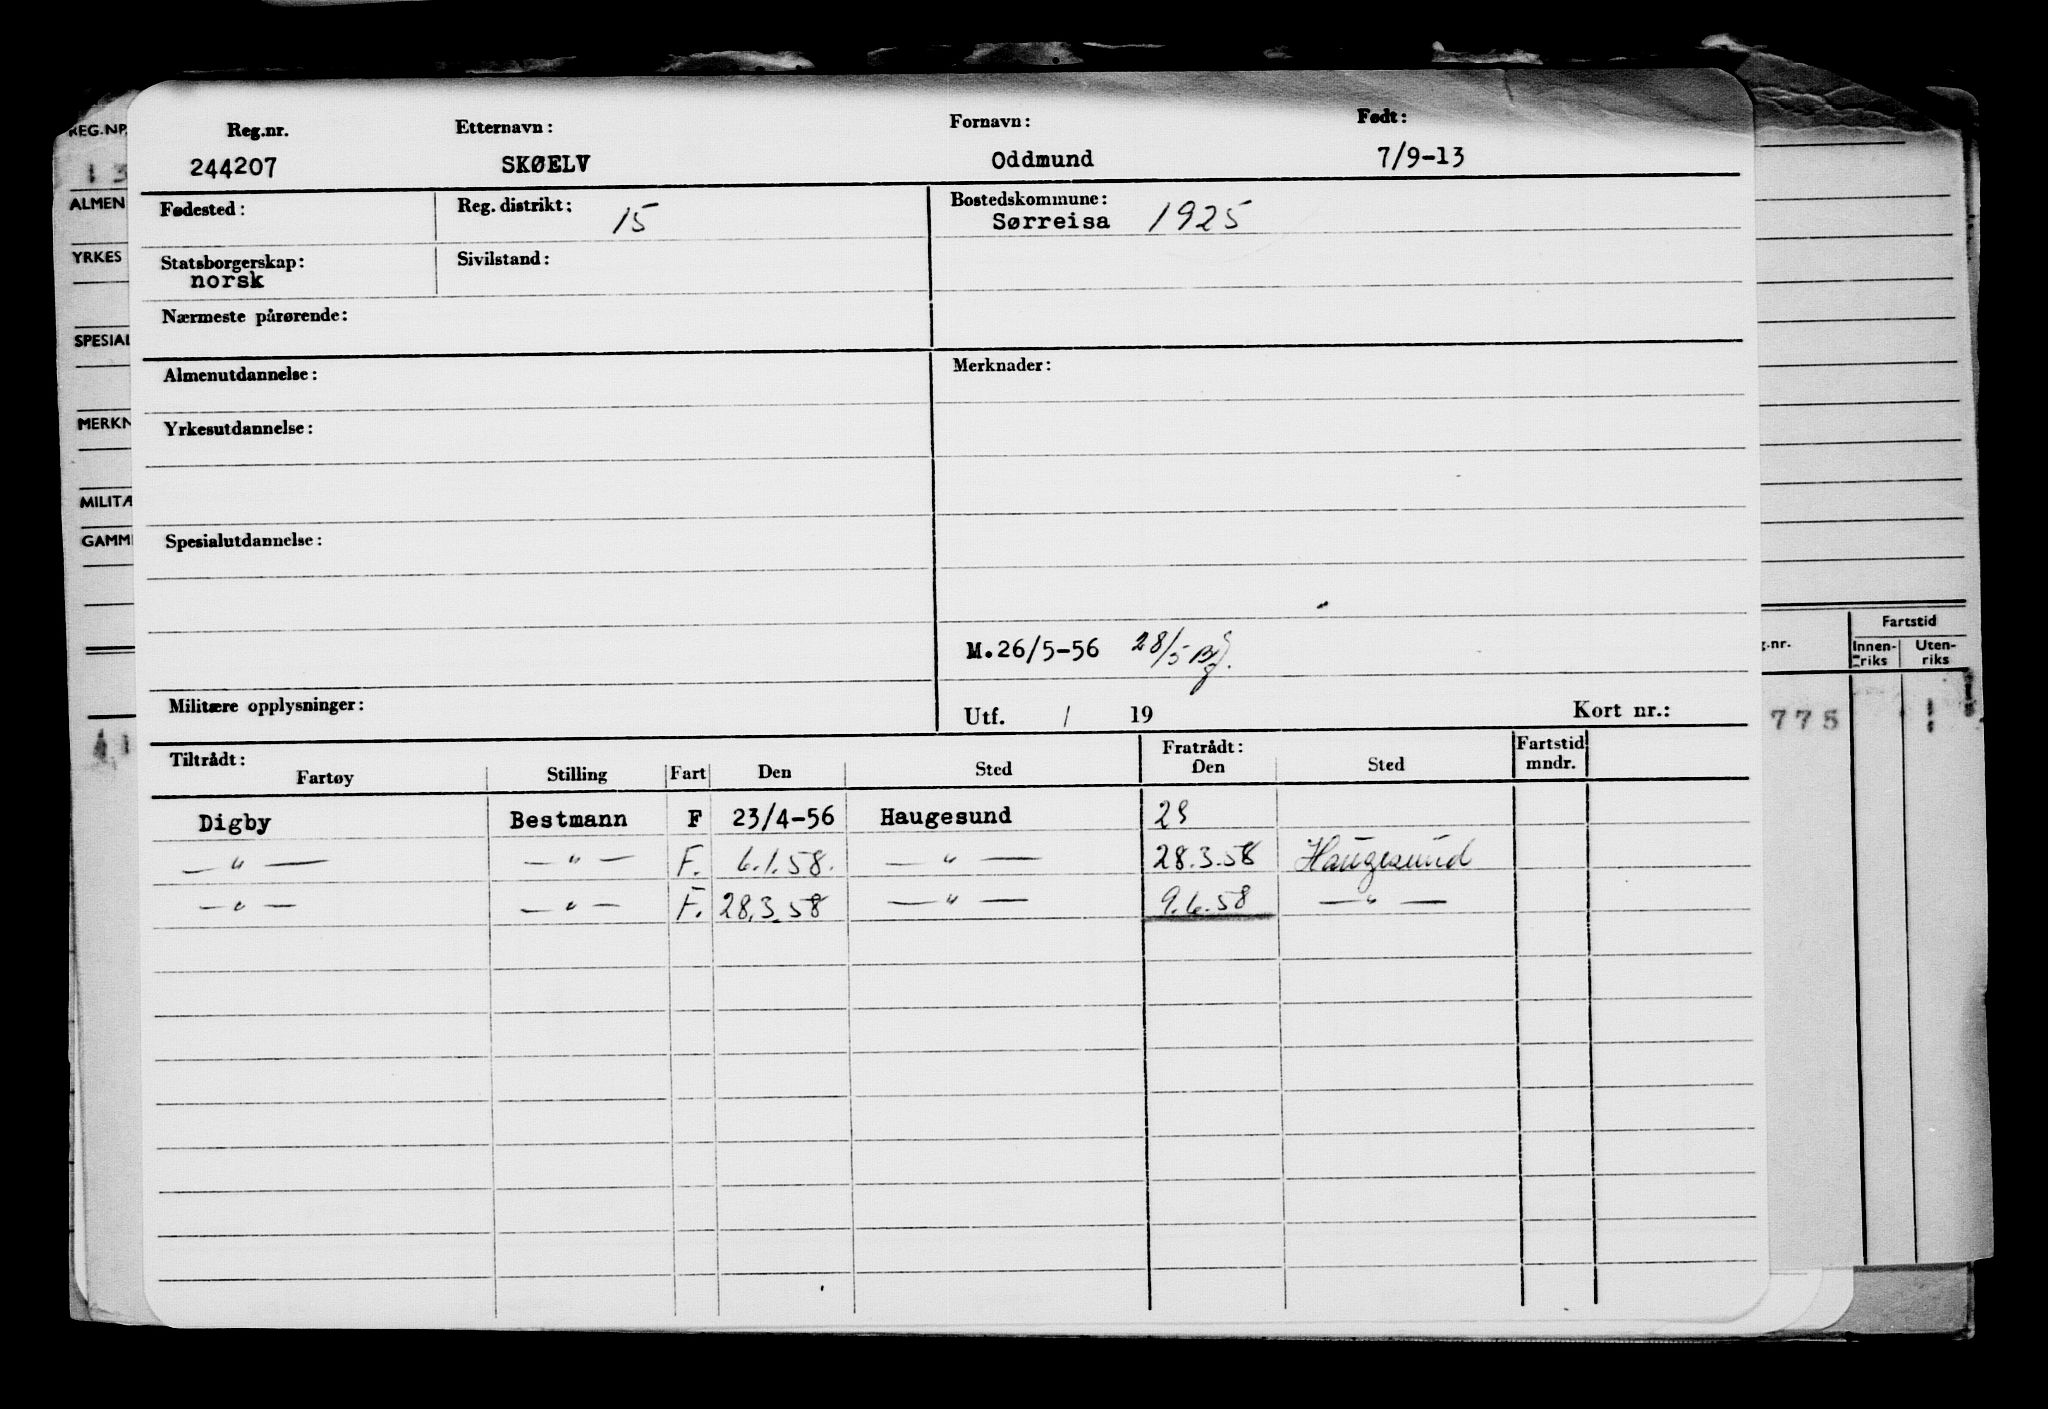 REG.NR.
13
ALMEN
YRKES
SPESIAL
MERKN
MILITÆ
GAMM
Reg.nr. Etternavn: Fornavn: Født:
244207 SKØELV Oddmund 7/9-13
Fødested: Reg. distrikt: 15 Bostedskommune:
Sørreisa 1925
Statsborgerskap: Sivilstand:
norsk
Nærmeste pårørende:
Almenutdannelse: Merknader:
Yrkesutdannelse:
Spesialutdannelse:
M.26/5-56 28/5
Militære opplysninger: Utf. / 19 Kort nr.:
Tiltrådt: Fratrådt: Fartstid
Fartøy Stilling Fart Den Sted Den Sted mndr.
Digby Bestmann F 23/4-56 Haugesund 23
— " — — " — F. 6.1.58. — " — 28.3.58 Haugesund
— " — — " — F. 28.3.58 — " — 9.6.58 — " —
Fartstid
g.nr. Innen- Uten-
riks riks
775